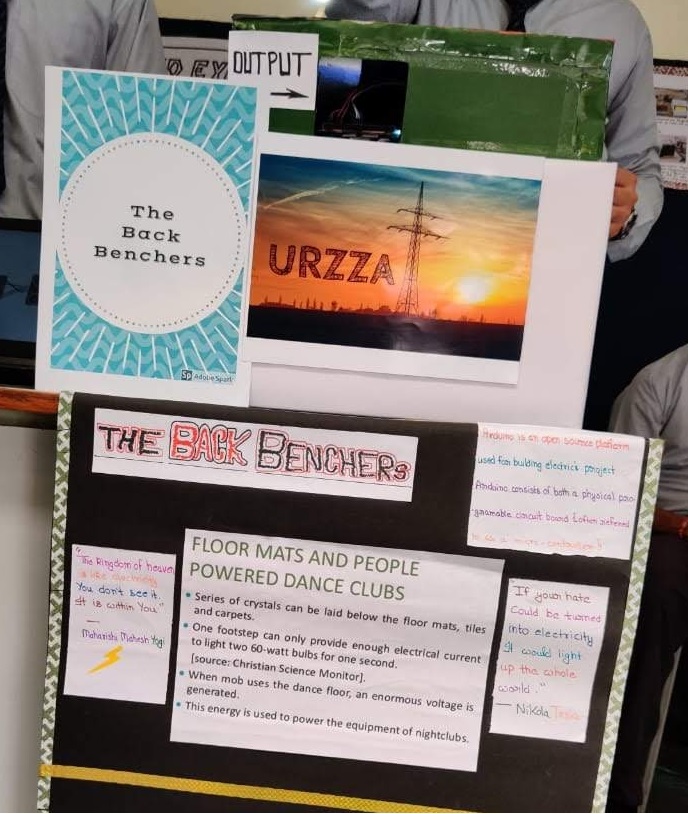 OUTPUT
The
Back
Benchers
Sp Adobe Spark
URZZA
THE BACK BENCHERS
Arduino is an open source platform
used for building electrics project
Arduino consists of both a physical pro-
gramable circuit board (often referred
to as a micro-controller)
"The Kingdom of heaven
is like electricity
You don't see it.
It is within You"
—
Maharishi Mahesh Yogi
FLOOR MATS AND PEOPLE
POWERED DANCE CLUBS
• Series of crystals can be laid below the floor mats, tiles
and carpets.
• One footstep can only provide enough electrical current
to light two 60-watt bulbs for one second.
[source: Christian Science Monitor].
• When mob uses the dance floor, an enormous voltage is
generated.
• This energy is used to power the equipment of nightclubs.
"If your hate
Could be turned
into electricity
It would light
up the whole
world."
— Nikola Tesla